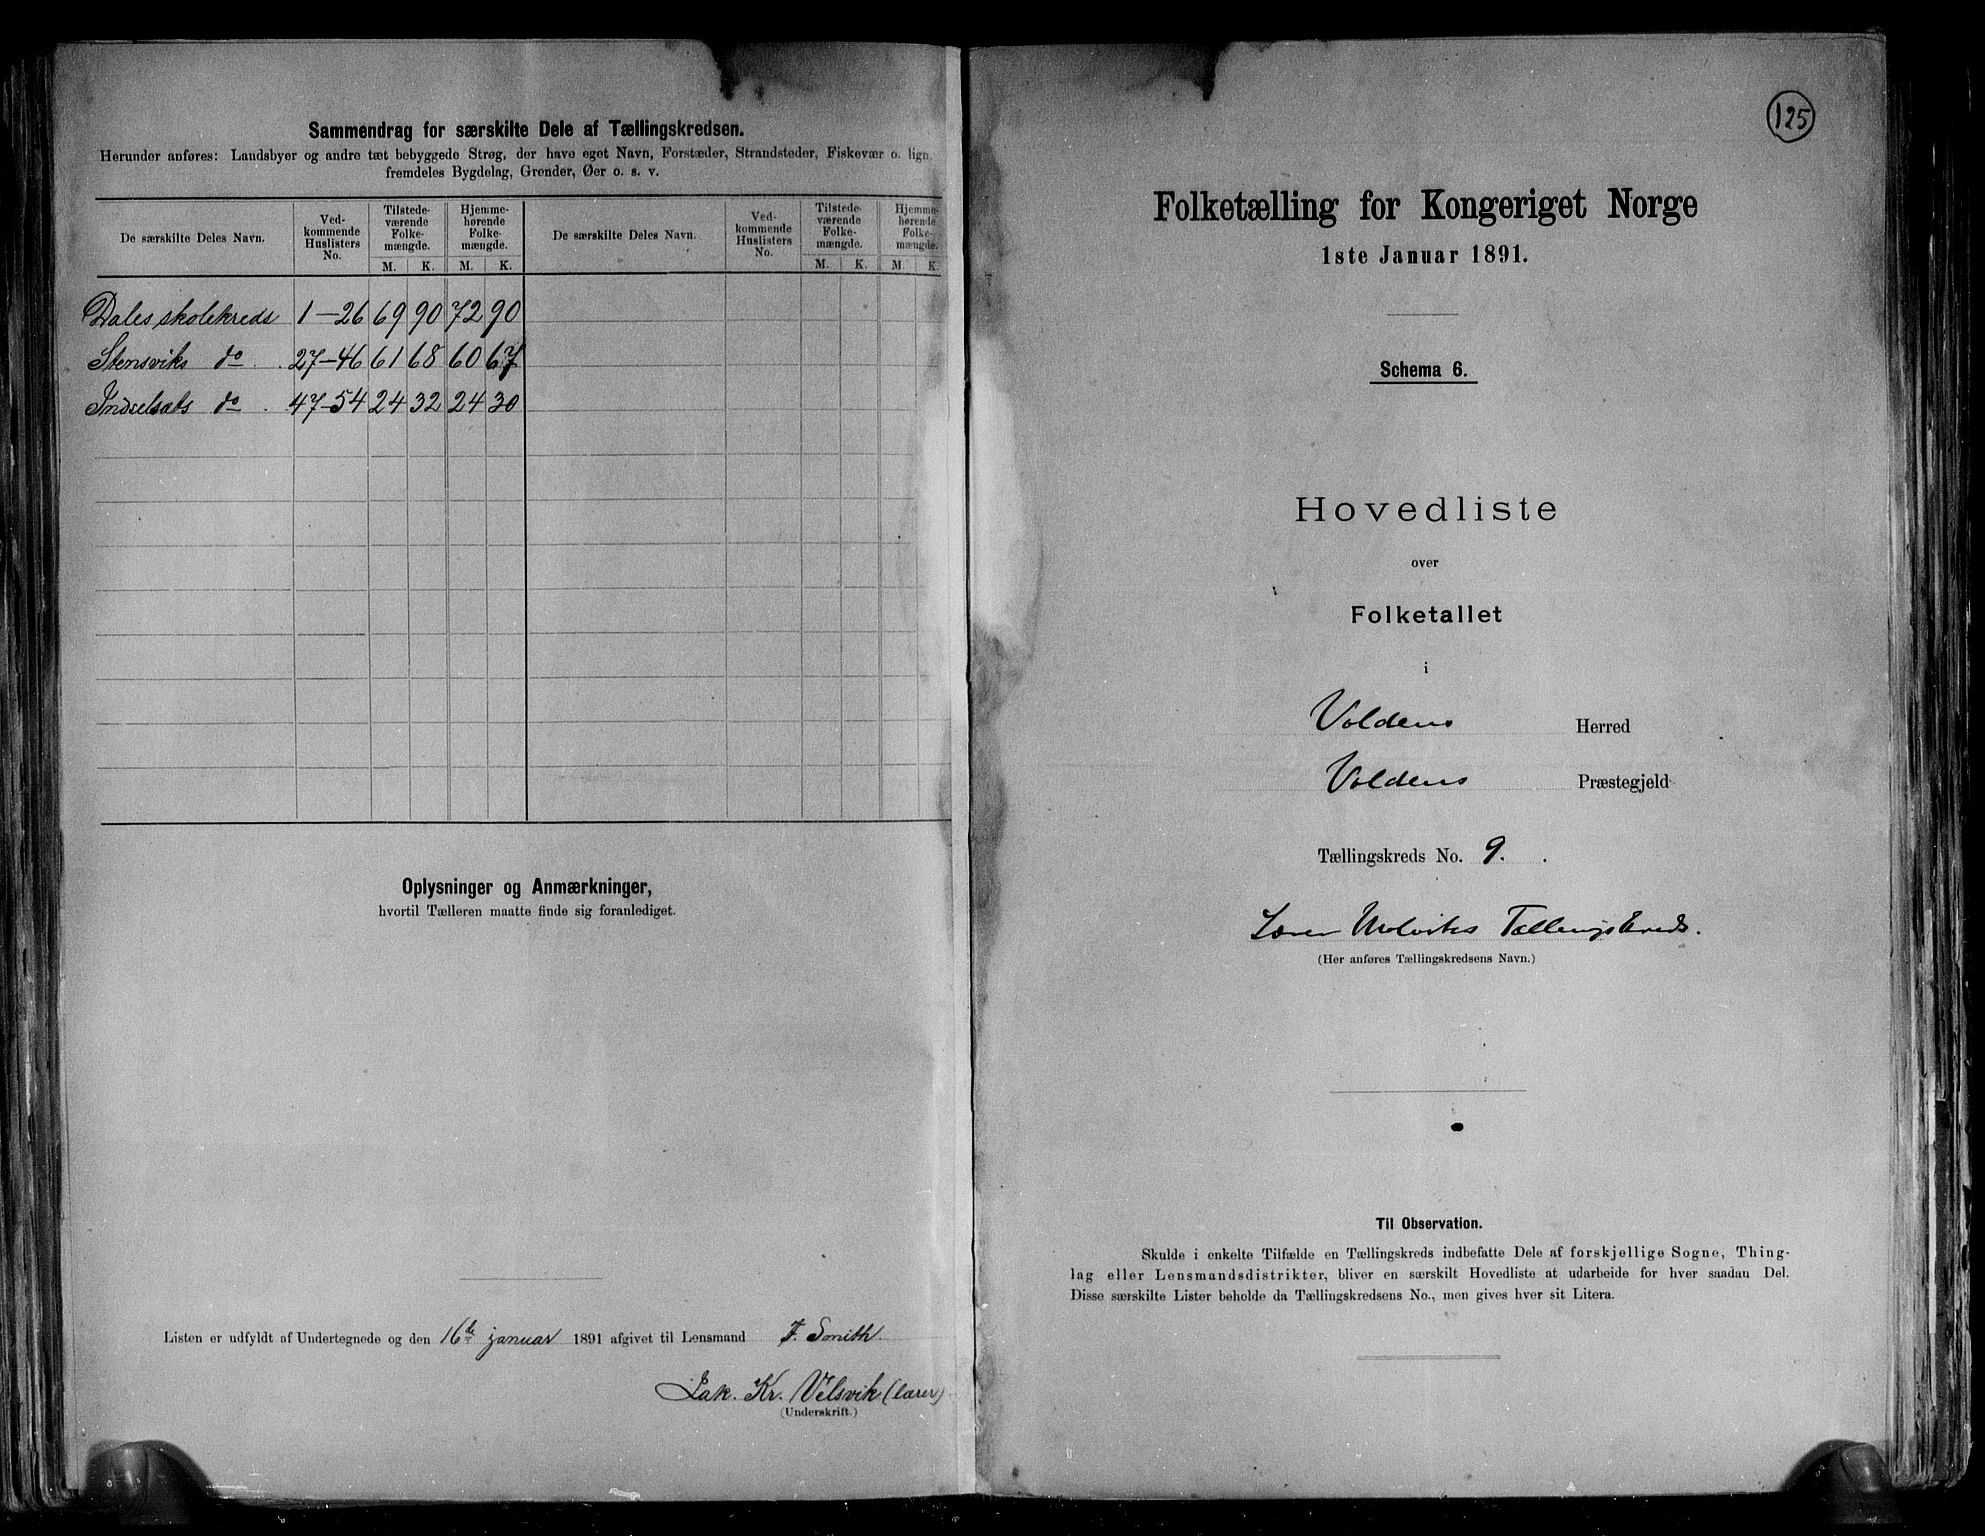 Sammendrag for særskilte Dele af Tællingskredsen.
Herunder anføres: Landsbyer og andre tæt bebyggede Strøg, der have eget Navn, Forstæder, Strandsteder, Fiskevær o. lign.
fremdeles Bygdelag, Grender, Øer o. s. v.
De særskilte Deles Navn. Ved-kommende Huslisters No. Tilstede-værende Folke-mængde. Hjemme-hørende Folke-mængde. De særskilte Deles Navn. Ved-kommende Huslisters No. Tilstede-værende Folke-mængde. Hjemme-hørende Folke-mængde.
M. K. M. K. M. K. M. K.
Dales skolekreds 1-26 69 90 72 90
Stensviks do 27-46 61 68 60 67
Indselsæts do 47-54 24 32 24 30
Oplysninger og Anmærkninger,
hvortil Tælleren maatte finde sig foranlediget.
Listen er udfyldt af Undertegnede og den 16de januar 1891 afgivet til Lensmand F. Smith
Jak. Kr. Velsvik (lærer)
(Underskrift.)
125
Folketælling for Kongeriget Norge
1ste Januar 1891.
Schema 6.
Hovedliste
over
Folketallet
i
Voldens Herred
Voldens Præstegjeld
Tællingskreds No. 9.
Lærer Tællingskreds.
(Her anføres Tællingskredsens Navn.)
Til Observation.
Skulde i enkelte Tilfælde en Tællingskreds indbefatte Dele af forskjellige Sogne, Thing-
lag eller Lensmandsdistrikter, bliver en særskilt Hovedliste at udarbeide for hver saadan Del.
Disse særskilte Lister beholde da Tællingskredsens No., men gives hver sit Litera.